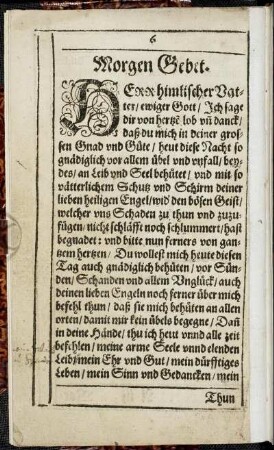 6
Morgen Gebet.
HErr himlischer Vat-
ter/ ewiger Gott/ Ich sage
dir von hertzē lob vn̄ danck/
daß du mich in deiner gros-
sen Gnad vnd Güte/ heut diese Nacht so
gnädiglich vor allem übel vnd vnfall/ bey-
des/ an Leib vnd Seel behütet/ vnd mit so
vätterlichem Schutz vnd Schirm deiner
lieben heiligen Engel/ wid den bösen Geist/
welcher vns Schaden zu thun vnd zuzu-
fügen/ nicht schläfft noch schlummert/ hast
begnadet: vnd bitte nun ferners von gan-
tzem hertzen/ Du wollest mich heute diesen
Tag auch gnädiglich behüten/ vor Sün-
den/ Schanden vnd allem Vnglück/ auch
deinen lieben Engeln noch ferner über mich
befehl thun/ daß sie mich behüten an allen
orten/ damit mir kein übels begegne/ Dañ
in deine Hände/ thu ich hetzt vnnd alle zeit
befehlen/ meine arme Seele vnnd elenden
Leib/ mein Ehr vnd Gut/ mein dürfftiges
Leben/ mein Sinn vnd Gedancken/ mein
Thun